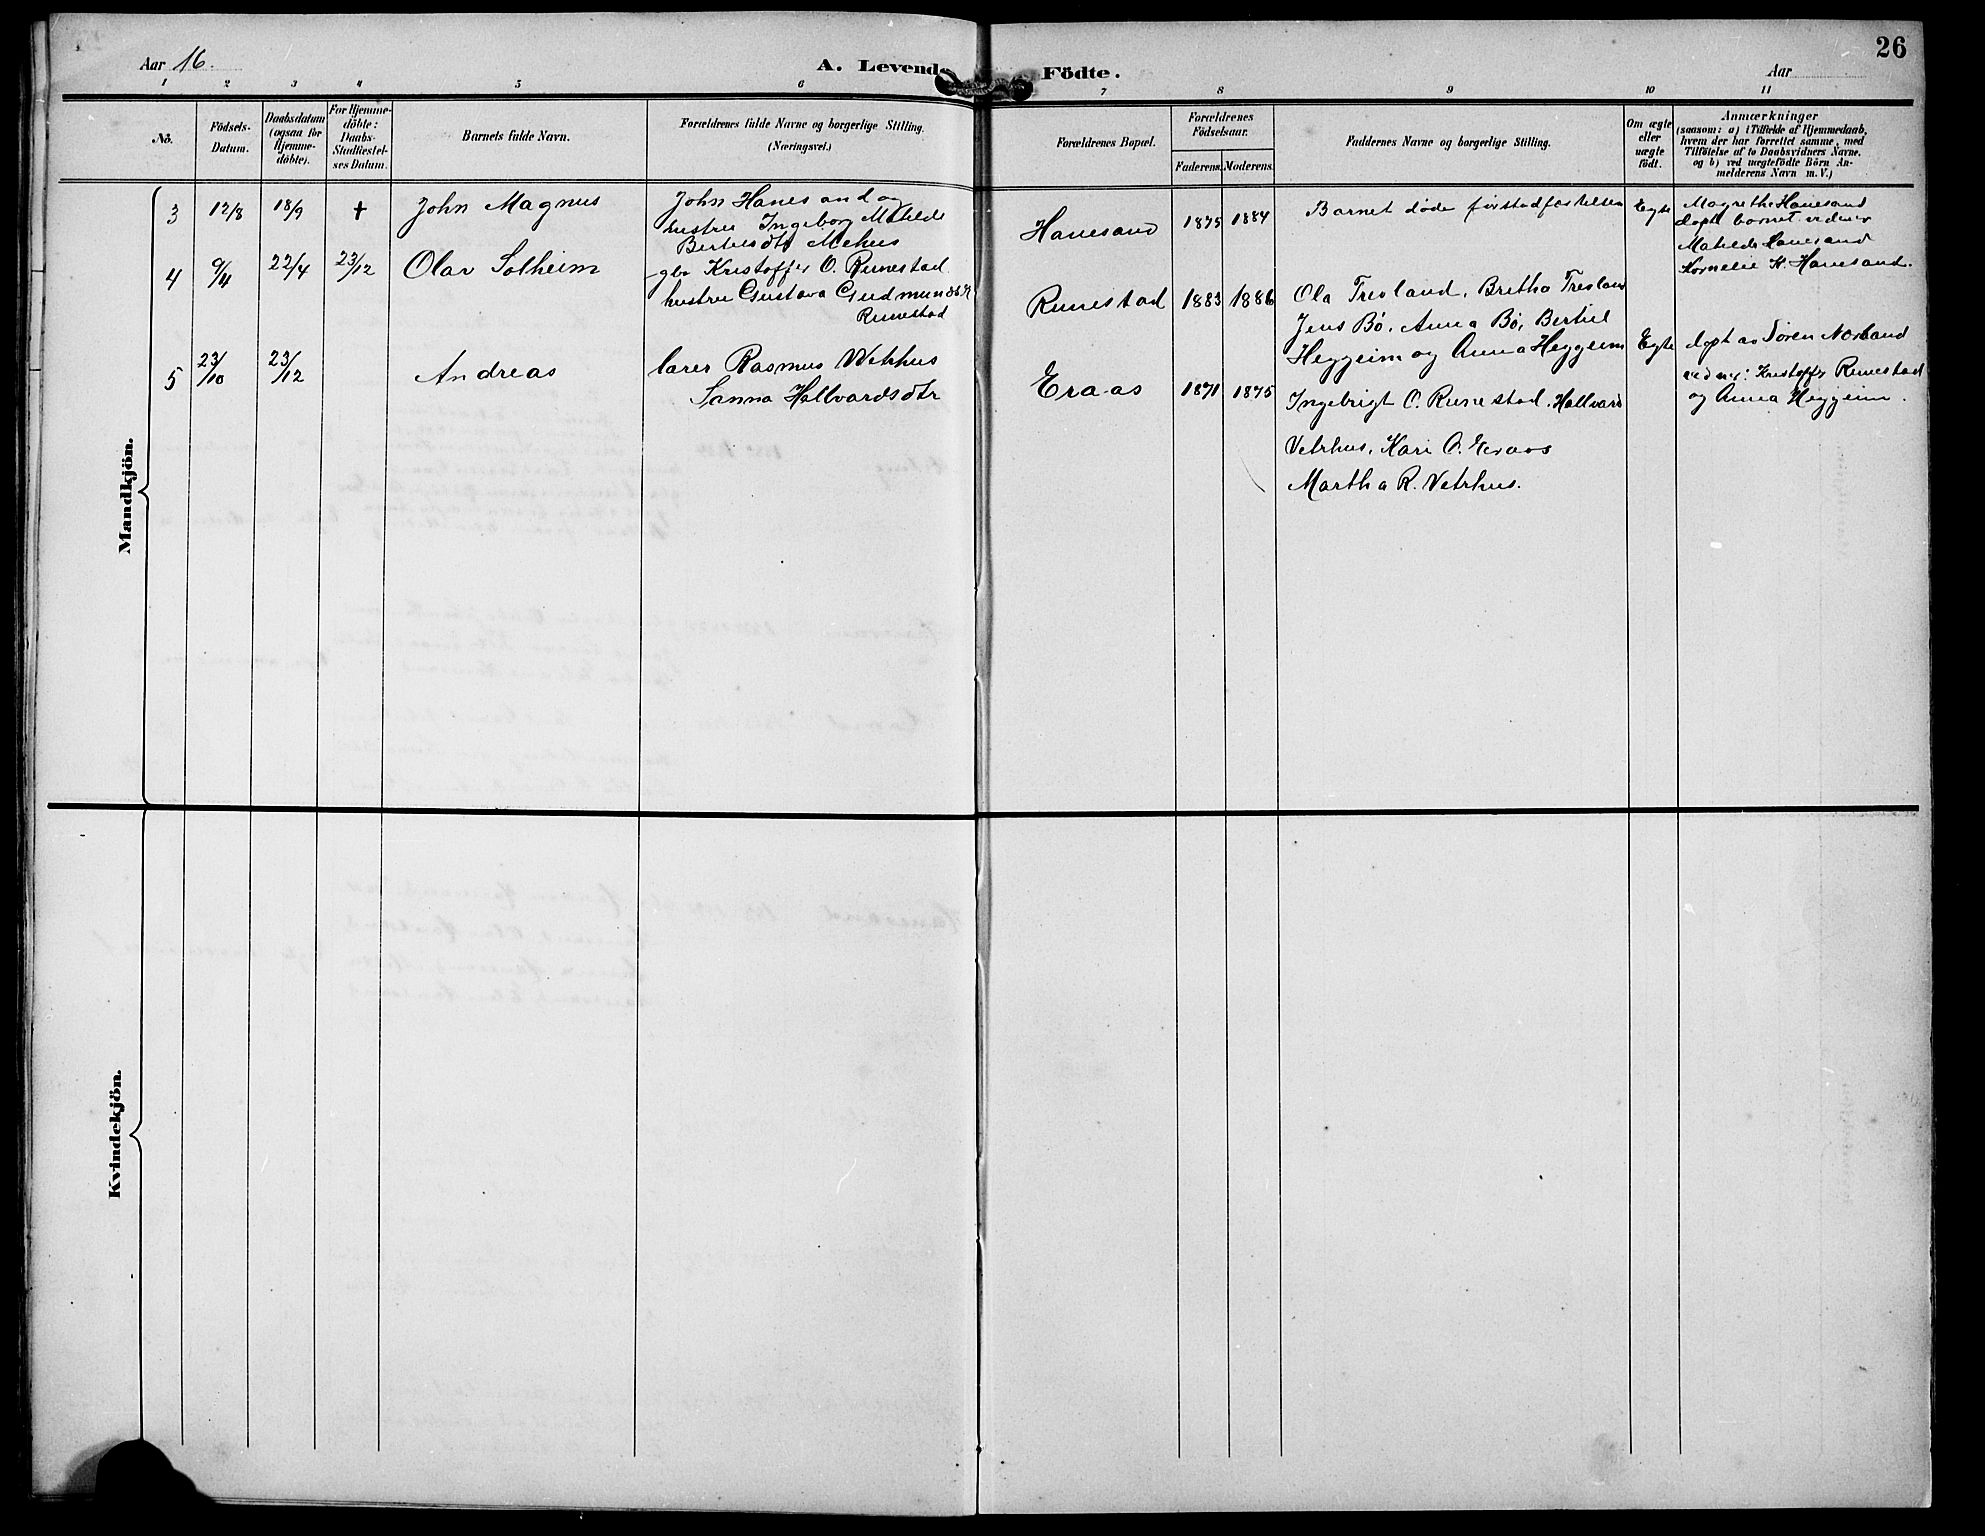 26
Aar 16.
A. Levende Födte.
Aar
1 2 3 4 5 6 7 8 9 10 11
No.
Födsels-
Datum.
Daabsdatum
(ogsaa for
Hjemme-
döbte).
For Hjemme-
döbte:
Daabs-
Stadfiestel-
ses Datum.
Barnets fulde Navn.
Forældrenes fulde Navne og borgerlige Stilling.
(Næringsvei.)
Forældrenes Bopæl.
Forældrenes
Födselsaar.
Faderens. Moderens.
Faddernes Navne og borgerlige Stilling.
Om ægte
eller
uægte
födt.
Anmærkninger
(saasom: a) i Tilfælde af Hjemmedaab,
hvem der har forrettet samme, med
Tilföielse af to Daabsvidners Navne,
og b) ved uægtefödte Börn An-
melderens Navn m. V.)
Mandkjön.
3 12/8 18/9 + John Magnus
John Hanesand og
hustru Ingeborg Matilde
Bertelsdtr Mehus
Hanesand 1875 1884
Barnet døde før stadfæstelsen
Egte
Magrethe Hanesand
døpt barnet vidner
Matilde Hanesand
Kornelie K. Hanesand.
4 9/4 22/4 23/12 Olav Solheim
gbr Kristoffer O. Runestad
hustru Gustava Gudmundsdtr
Runestad
Runestad 1883 1886
Ola Tresland, Bretha Tresland
Jens Bø, Anna Bø, Bertiel
Heggeim og Anna Heggeim
Egte
døpt av Søren Nordland
vidner: Kristoffer Runestad
og Anna Heggeim.
5 23/10 23/12 Andreas
lærer Rasmus Vetrhus
Sanna Hallvardsdtr
Eraas 1871 1875
Ingebrigt O. Runestad, Hallvard
Vetrhus, Kari O. Eraas
Martha R. Vetrhus.
Kvindekjön.